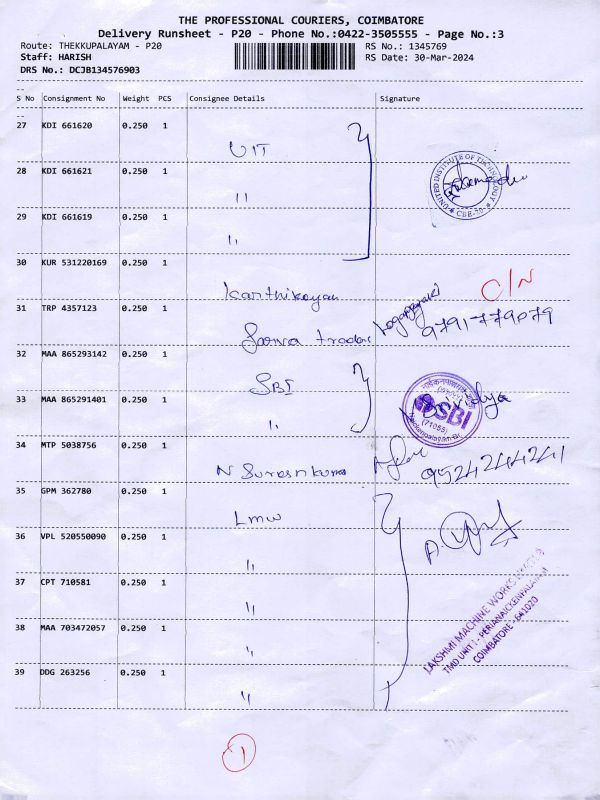 THE PROFESSIONAL COURIERS, COIMBATORE
Delivery Runsheet - P20 - Phone No.:0422-3505555 - Page No.:3
Route: THEKKUPALAYAM - P20 RS No.: 1345769
Staff: HARISH RS Date: 30-Mar-2024
DRS No.: DCJB134576903
--
S No Consignment No Weight PCS Consignee Details Signature
--
27 KDI 661620 0.250 1
UIT
28 KDI 661621 0.250 1
UNITED INSTITUTE OF TECHNOLOGY
* CBE-20 *
"
29 KDI 661619 0.250 1
"
30 KUR 531220169 0.250 1
Karthikeyan C/N
31 TRP 4357123 0.250 1
9791779079
32 MAA 865293142 0.250 1
SBI
33 MAA 865291401 0.250 1
SBI
(71055)
"
34 MTP 5038756 0.250 1
N Sureshkumar 9524244241
35 GPM 362780 0.250 1
LMW
36 VPL 520550090 0.250 1
"
37 CPT 710581 0.250 1
"
LAKSHMI MACHINE WORKS LIMITED
TMD UNIT I - PERIANAICKENPALAYAM
COIMBATORE - 641020
38 MAA 703472057 0.250 1
"
39 DDG 263256 0.250 1
"
1